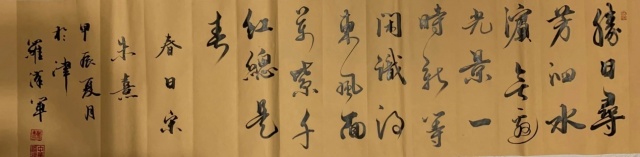 勝日尋
芳泗水
濱無邊
光景一
時新等
閒識得
東風面
萬紫千
紅總是
春
春日宋
朱熹
甲辰夏月
於津
羅澤軍